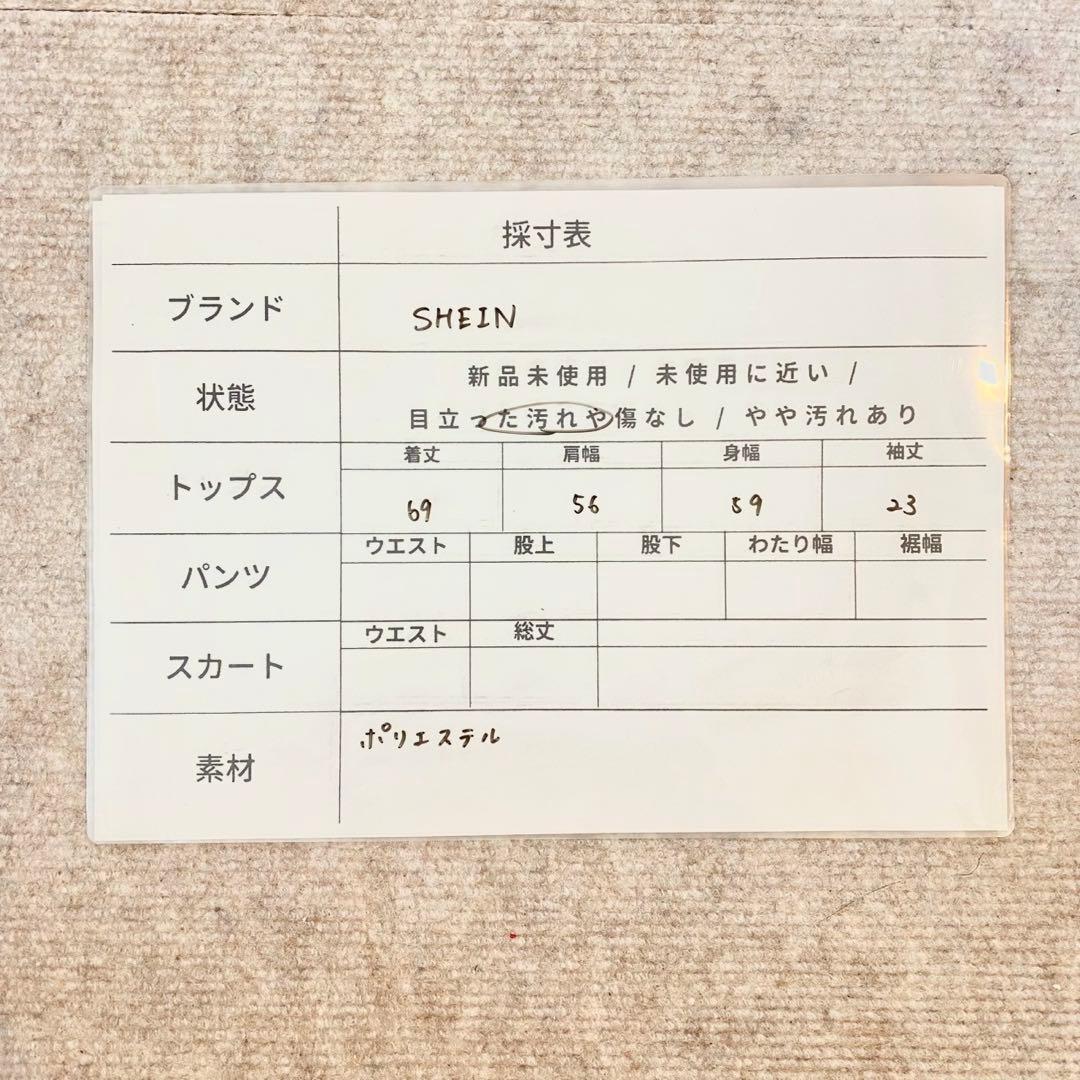 採寸表
ブランド SHEIN
状態 新品未使用 / 未使用に近い /
目立った汚れや傷なし / やや汚れあり
トップス 着丈 肩幅 身幅 袖丈
69 56 59 23
パンツ ウエスト 股上 股下 わたり幅 裾幅
スカート ウエスト 総丈
素材 ポリエステル